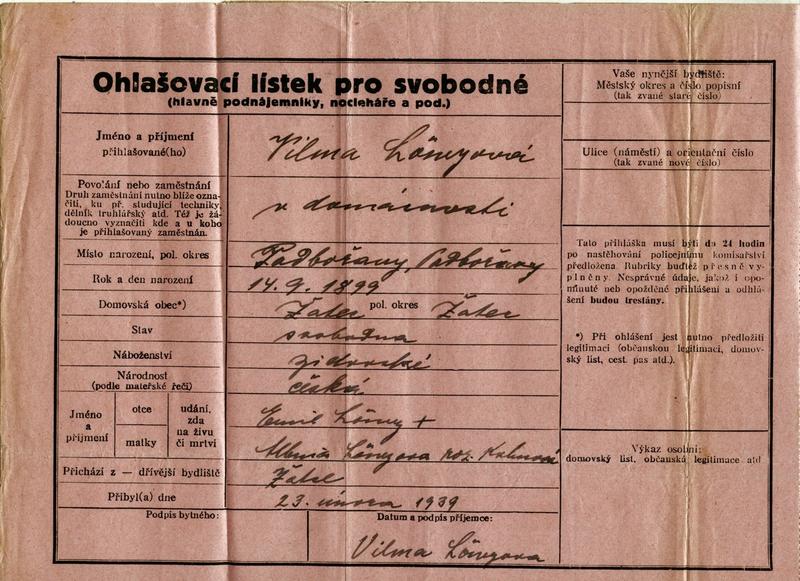 Ohlašovací lístek pro svobodné
(hlavně podnájemníky, nocleháře a pod.)
Jméno a příjmení
přihlašované(ho)
Vilma Löwyová
Povo'ání nebo zaměstnání
Druh zaměstnání nutno blíže ozna-
čiti, ku př. studující techniky,
dělník truhlářský atd. Též je žá-
doucno vyznačiti kde a u koho
je přihlašovaný zaměstnán.
v domácnosti
Místo narození, pol. okres
Podbořany, Podbořany
Rok a den narození
14. 9. 1899
Domovská obec*)
Žatec pol. okres Žatec
Stav
svobodna
Náboženství
židovské
Národnost
(podle mateřské řeči)
česká
Jméno
a
příjmení
otce
matky
udání,
zda
na živu
či mrtvi
Emil Löwy +
Löwyova roz. Kohnová
Přichází z — dřívější bydliště
Žatec
Přibyl(a) dne
23. února 1939
Podpis bytného:
Datum a podpis příjemce:
Vilma Löwyova
Vaše nynější bydliště:
Městský okres a číslo popisní
(tak zvané staré číslo)
Ulice (náměstí) a orientační číslo
(tak zvané nové číslo)
Tato přihláška musí býti do 24 hodin
po nastěhování policejnímu komisařství
předložena. Rubriky buďtež přesně vy-
plněny. Nesprávné údaje, jakož i opo-
minuté neb opožděné přihlášení a odhlá-
šení budou trestány.
*) Při ohlášení jest nutno předložiti
legitimaci (občanskou legitimaci, domov-
ský list, cest. pas atd.).
Výkaz osobní:
domovský list, občanská legitimace atd